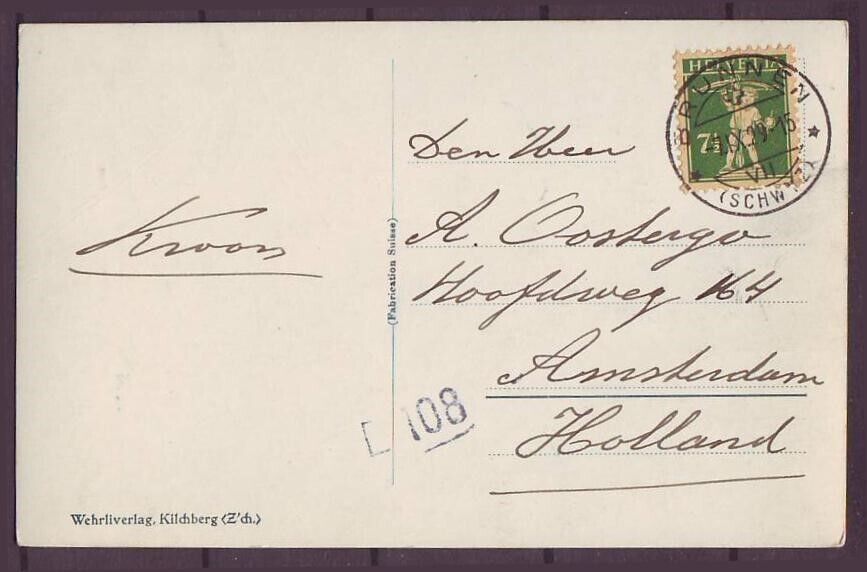 HELVETIA
7½
BRUNNEN
IX.29-15
VII
(SCHWYZ)
Den Heer
A. Oostergo
Hoofdweg 164
Amsterdam
Holland
Kroon
(Fabrication Suisse)
L 108
Wehrliverlag, Kilchberg (Z'ch.)